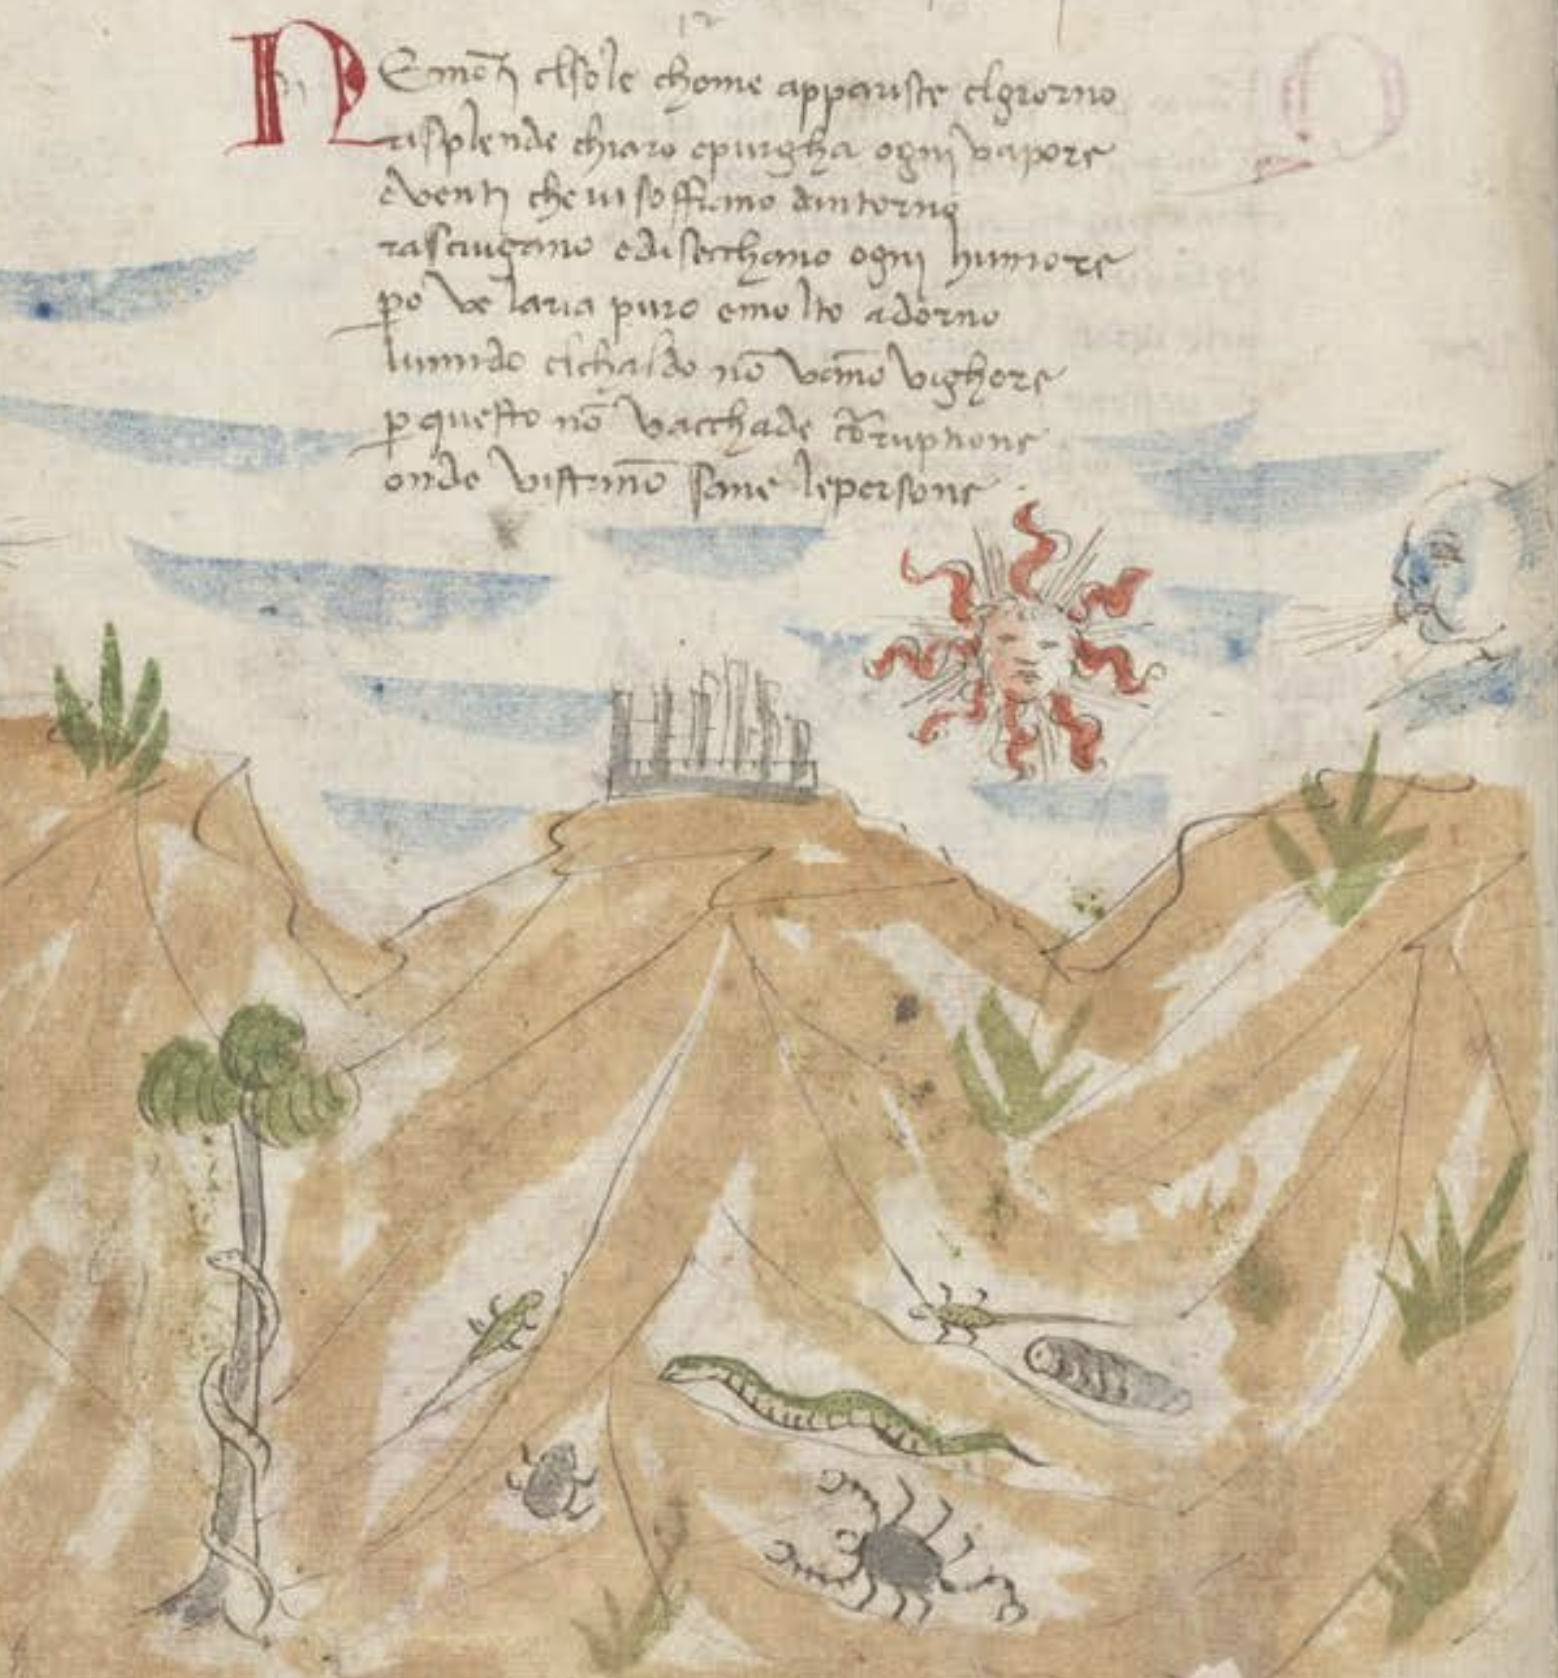 NEmōti elsole chome appariste elgiorno
risplende chiaro epurgha ogni vapore
eventi che vi soffiano dintorno
rasciugano edisecchano ogni humore
po ve laria puro emolto adorno
lumido elchaldo nō vāno vighore
p questo nō vacchade corruptione
onde vistānō sane lepersone